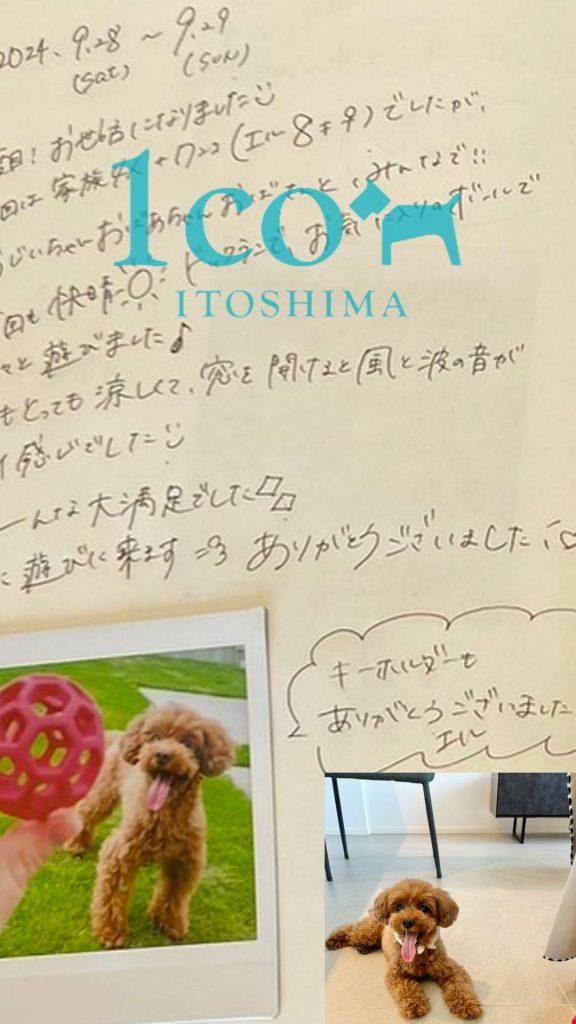 2024. 9.28 ~ 9.29
(sat) (SUN)
目! お世話になりました
回は 家族 + ワンコ (エル 8才♀) でしたが、
じいちゃん おばあちゃん おばさんと みんなで!!
回も 快晴 ドッグランで、お気に入りのボールで
々と 遊びました♪
もとっても 涼しくて、窓を 開けると 風と 波の音が
イイ感じでした
んな 大満足でした
に 遊びに来ます =3 ありがとうございました!♡
1co
ITOSHIMA
キーホルダーも
ありがとうございました
エル